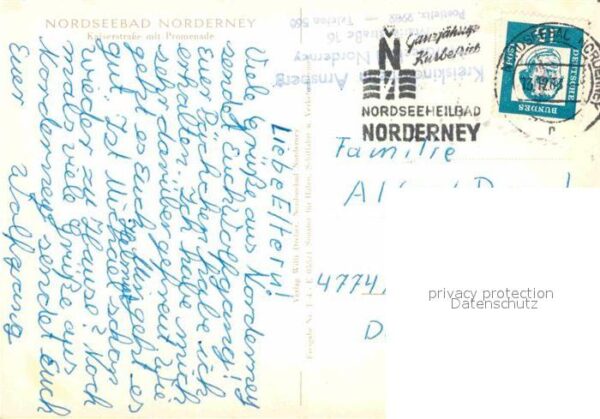 NORDSEEBAD NORDERNEY
Kaiserstraße mit Promenade
Liebe Eltern!
Viele Grüße aus Norderney
sendet Euch Wolfgang!
Euer Päckchen habe ich
erhalten. Ich habe mich
sehr darüber gefreut. Wie
geht es Euch? Mir geht es
gut. Ist Michael schon
wieder zu Hause? Noch
mals viele Grüße aus
Norderney sendet Euch
Euer Wolfgang
Verlag
Nordseebad Norderney
Kreiskinderheim Arnsberg
Norderney
Ganzjährige
Kurbetrieb
N
NORDSEEHEILBAD
NORDERNEY
NORDERNEY
15
DEUTSCHE
BUNDESPOST
Familie
4774
privacy protection
Datenschutz